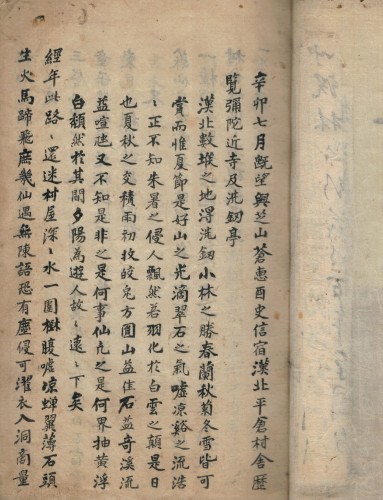 辛卯七月旣望與芝山蒼惠酉史信宿漢北平倉村舍歷
覽彌陀近寺及洗釰亭
漢北數堠之地得洗釰小林之勝春蘭秋菊冬雪皆可
賞而惟夏節是好山之光滴翠石之氣噓凉谿之流浩
〻正不知朱暑之侵人飄然若羽化於白雲之顛是日
也夏秋之交積雨初收皎皃方圓山益佳石益奇溪流
益喧又不知是非之是何事仙凢之是何界抽黃浮
白頹然於其間夕陽為遊人故〻遠〻下矣
經年此路〻還迷村屋深〻水一圍樹腹噓凉蟬翼薄石頭
生火馬蹄飛庶幾仙遇無陳語恐有塵侵可濯衣入洞商量